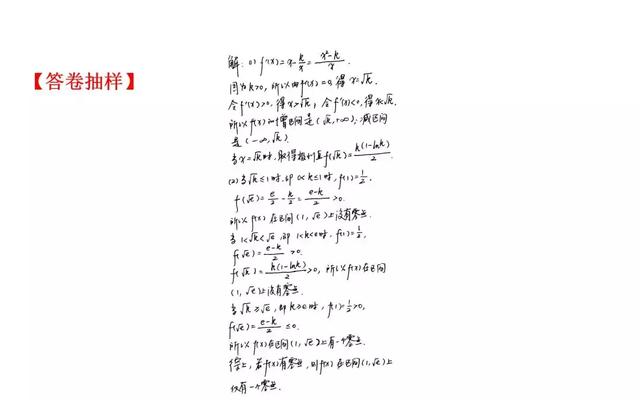 【答卷抽样】
解:(1) f'(x)=x-k/x=(x²-k)/x.
因为k>0, 所以由f'(x)=0, 得x=√k.
令f'(x)>0, 得x>√k; 令f'(x)<0, 得x<√k.
所以f(x)的增区间是(√k,+∞); 减区间
是(-∞,√k).
当x=√k时, 取得极小值f(√k)=k(1-lnk)/2.
(2)当√k≤1时, 即0<k≤1时, f(1)=1/2,
f(√e)=e/2-k/2=(e-k)/2>0.
所以f(x)在区间(1,√e)上没有零点.
当1<√k<√e, 即1<k<e时, f(1)=1/2,
f(√e)=(e-k)/2>0.
f(√k)=k(1-lnk)/2>0, 所以f(x)在区间
(1,√e)上没有零点.
当√k≥√e, 即k≥e时, f(1)=1/2>0,
f(√e)=(e-k)/2≤0.
所以f(x)在区间(1,√e)上有一个零点.
综上, 若f(x)有零点, 则f(x)在区间(1,√e)上
仅有一个零点.